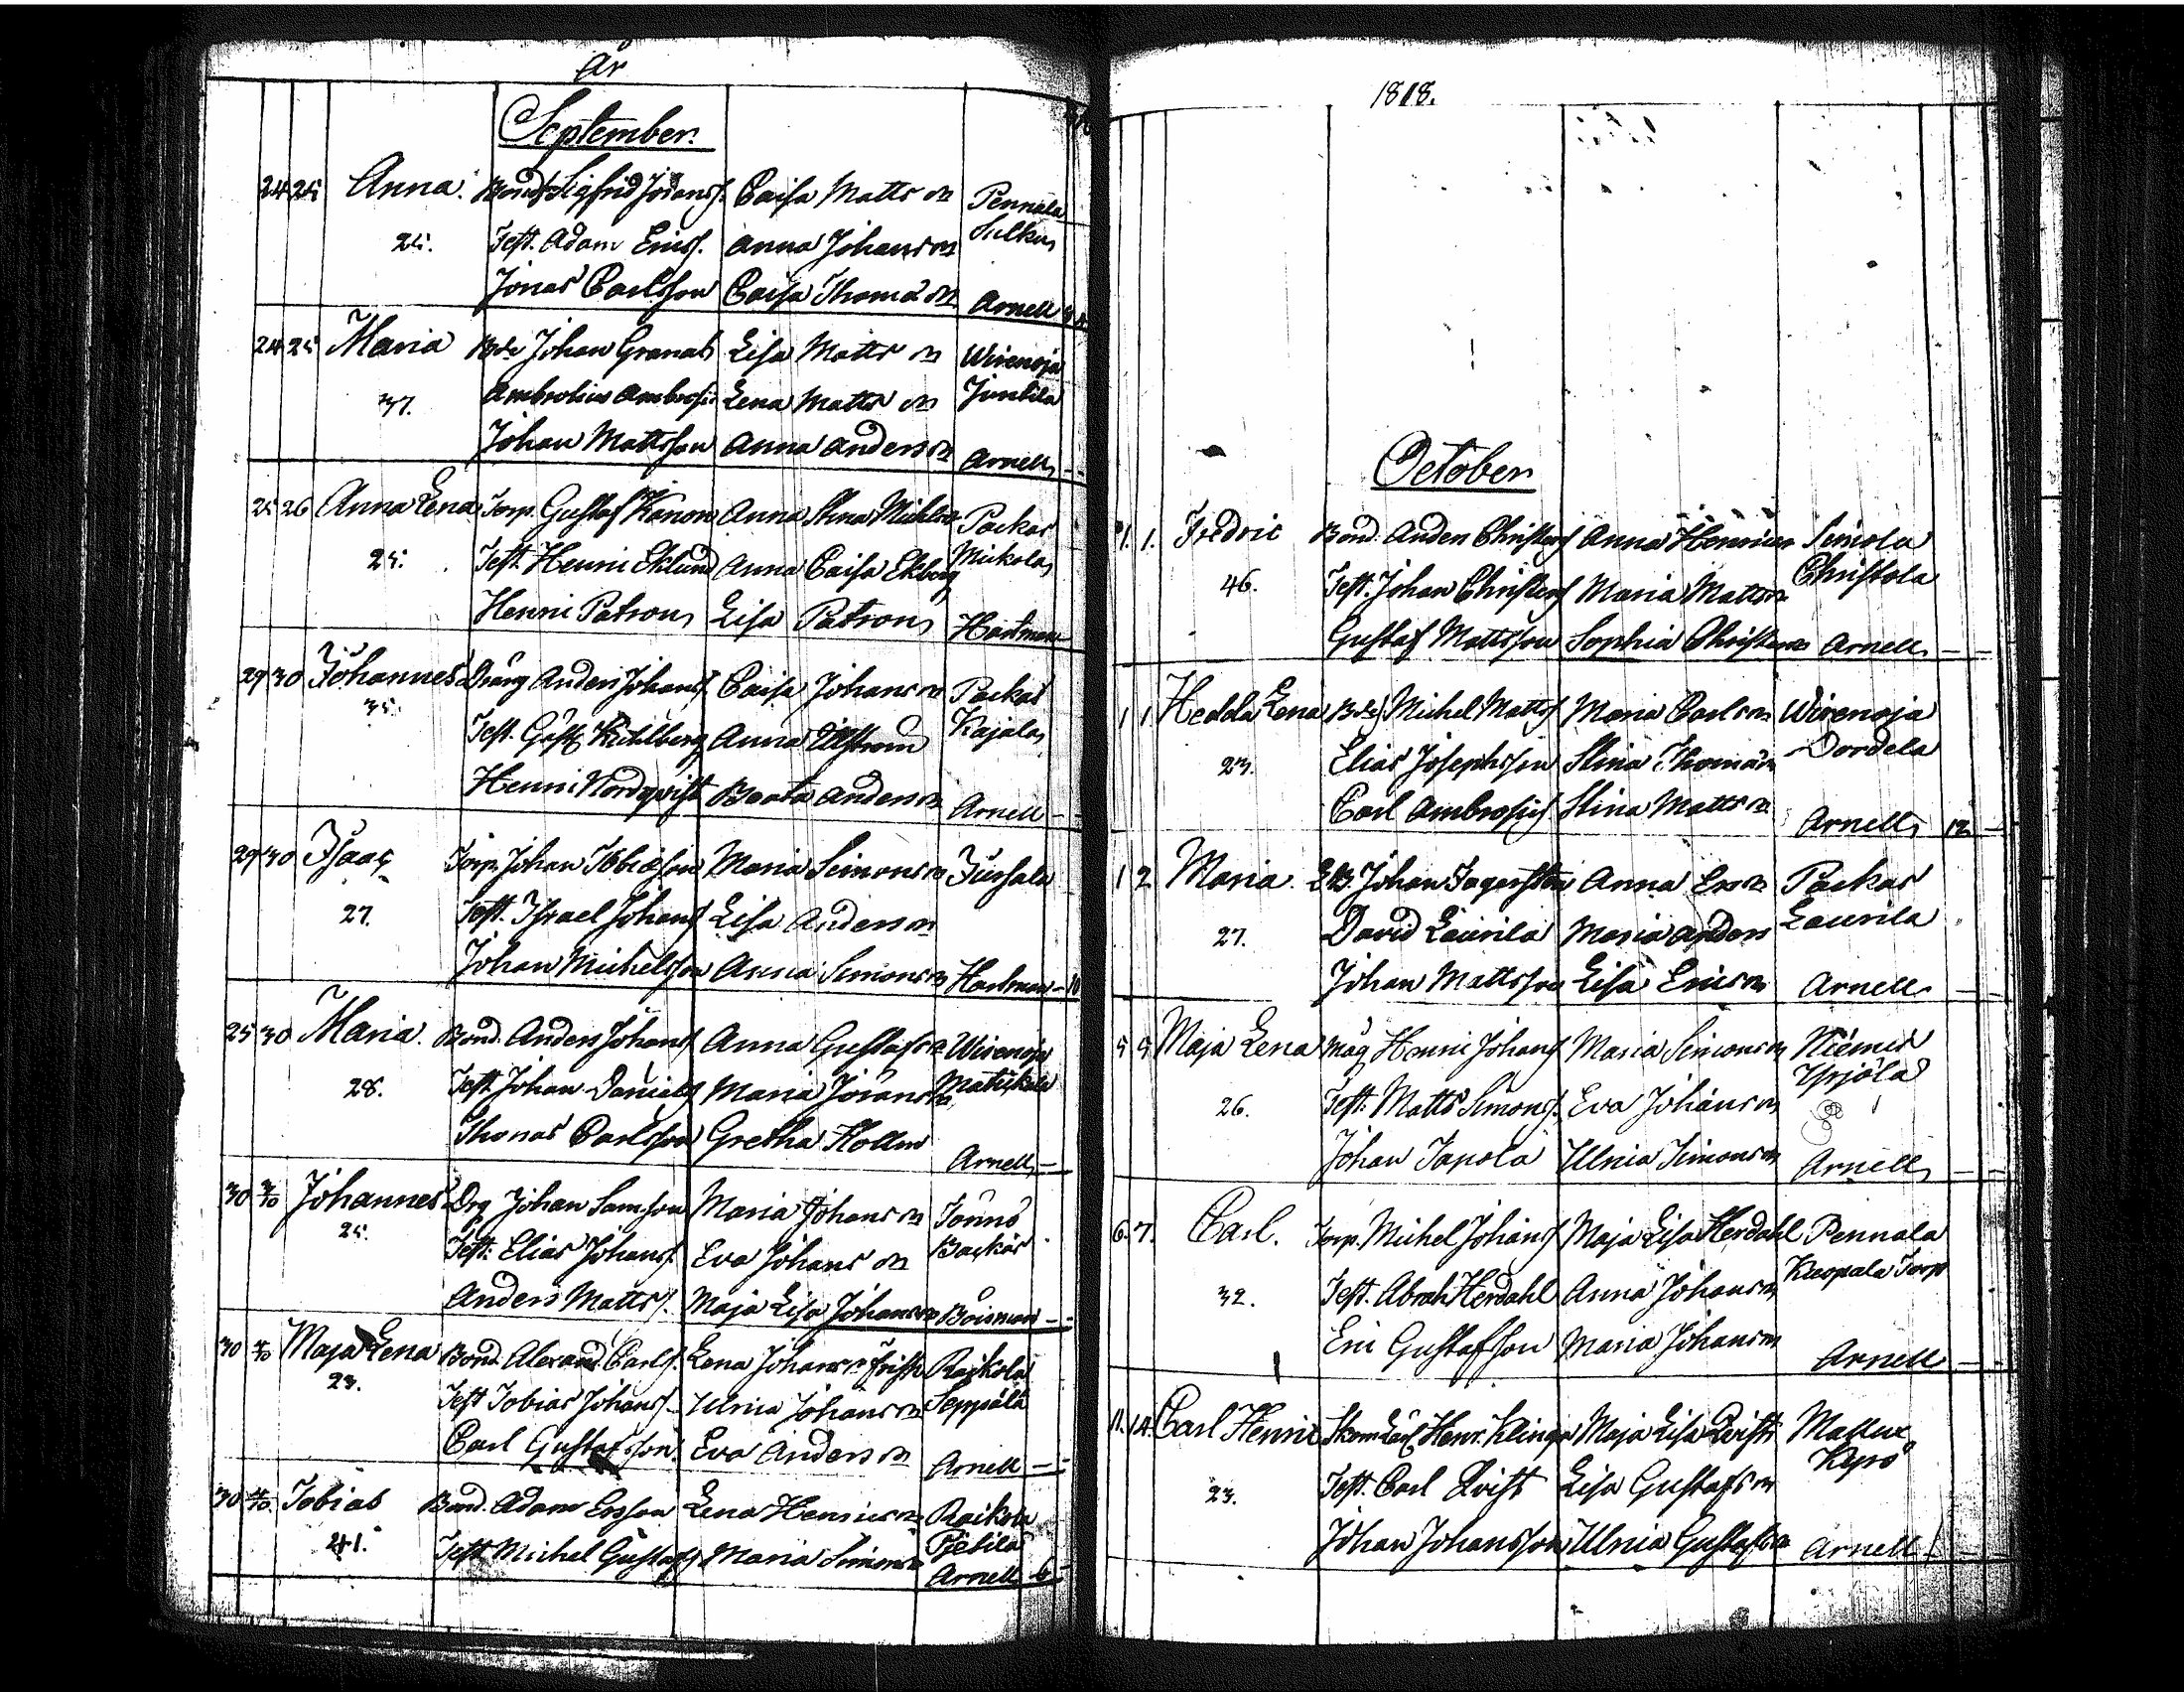 År
September.
24 25 Anna. Bond. Sigfrid Jöranss. Caisa Matts dr Pennala
25. Test. Adam Ericss. Anna Johans dr
Jonas Carlsson Caisa Thomæ dr Arnell
24 25 Maria Bde Johan Granat Lisa Matts dr Wirenoja
37. Ambrosius Ambrosii Lena Matts dr Juntila
Johan Mattsson Anna Anders dr Arnell
25 26 Anna Lena Torp. Gustaf Kanon Anna Stina Michls Packas
25. Test. Henric Eklund Anna Caisa Ekberg Mickola
Henric Patron Lisa Patron Hartman
29 30 Johannes Dräng Anders Johanss. Caisa Johans dr Packas
35. Test. Anna Kajala
Henric Nordqvist Beata Anders dr Arnell
29 30 Isaac Torp. Johan Tobiæson Maria Simons dr
27. Test. Israel Johanss Lisa Anders dr
Johan Michelsson Anna Simons dr Hartman 10
25 30 Maria. Bond. Anders Johanss Anna Gustafs dr Wirenoja
28. Test. Johan Daniels Maria Jörans dr
Thomas Carlsson Gretha Arnell
30 3/10 Johannes Drg Johan Samsson Maria Johans dr Tönnö
25. Test. Elias Johanss. Eva Johans dr
Anders Matts. Maja Lisa Johans dr Boisman
30 Maja Lena Bond. Alexand. Carls. Lena Johans dr Raikola
23. Test Tobias Johanss. Ulrica Johans dr Seppälä
Carl Gustafsson. Eva Anders dr Arnell
30 4/10 Tobias Bond. Adam Ersson Lena Henrics dr Raikola
41. Test Michel Gustafs Maria Simons dr
Arnell 6
1818.
October
1. 1. Fredric Bond. Anders Christers Anna Henrics Simola
46. Test. Johan Christers Maria Matts dr Christola
Gustaf Mattsson Sophia Christers Arnell
1 1 Hedda Lena Bde Michel Matts Maria Carls dr Wirenoja
23. Elias Josephsson Stina Thomæ Dordela
Carl Ambrosius Stina Matts dr Arnell 12
1 2 Maria. Johan Anna Ers dr Packas
27. David Laurila Maria Anders Laurila
Johan Mattsson Lisa Erics dr Arnell
5 5 Maja Lena Måg Henric Johanss Maria Simons dr Niemis
26. Test. Matts Simons. Eva Johans dr Yrjölä
Johan Tapola Ulrica Simons dr Arnell
6. 7. Carl. Torp. Michel Johanss Maja Lisa Herdahl Pennala
32. Test. Abrah Herdahl Anna Johans dr Kuopala Torp
Eric Gustafsson Maria Johans dr Arnell
11. 14. Carl Henric Henr. Klinga Maja Lisa
23. Test. Carl Qvist Lisa Gustafs dr
Johan Johansson Ulrica Gustafs dr Arnell